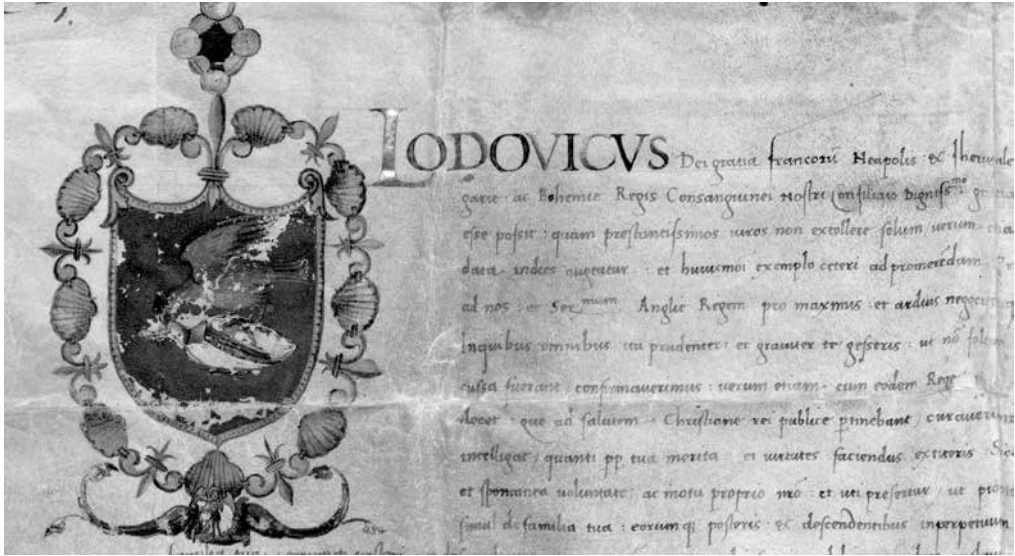 LODOVICVS Dei gratia francorũ Neapolis et Iherusale
garie ac Bohemie Regis Consanguinei Nostri Consiliario Digniss.mo
esse possit : quam prestantissimos uiros non extollere solum, uerum
data indies augeatur : et huiusmoi exemplo ceteri ad promerẽdam
ad nos : et Ser.mum Anglie Regem pro maximis et arduis negocijs
Inquibus omnibus ita prudenter et grauiter te gesseris : ut nõ solum
cussa fuerant confirmauerimus : uerum etiam cum eodem Rege
docet que ad salutem Christiane rei publice ptinebant curauerimus
intelligas quanti pp tua merita et uirtutes faciendus extiteris
et spontanea uoluntate ac motu proprio nro : et uti prefertur ut
simul de familia tua : eorum q; posteris et descendentibus inperpetuum
familia tua